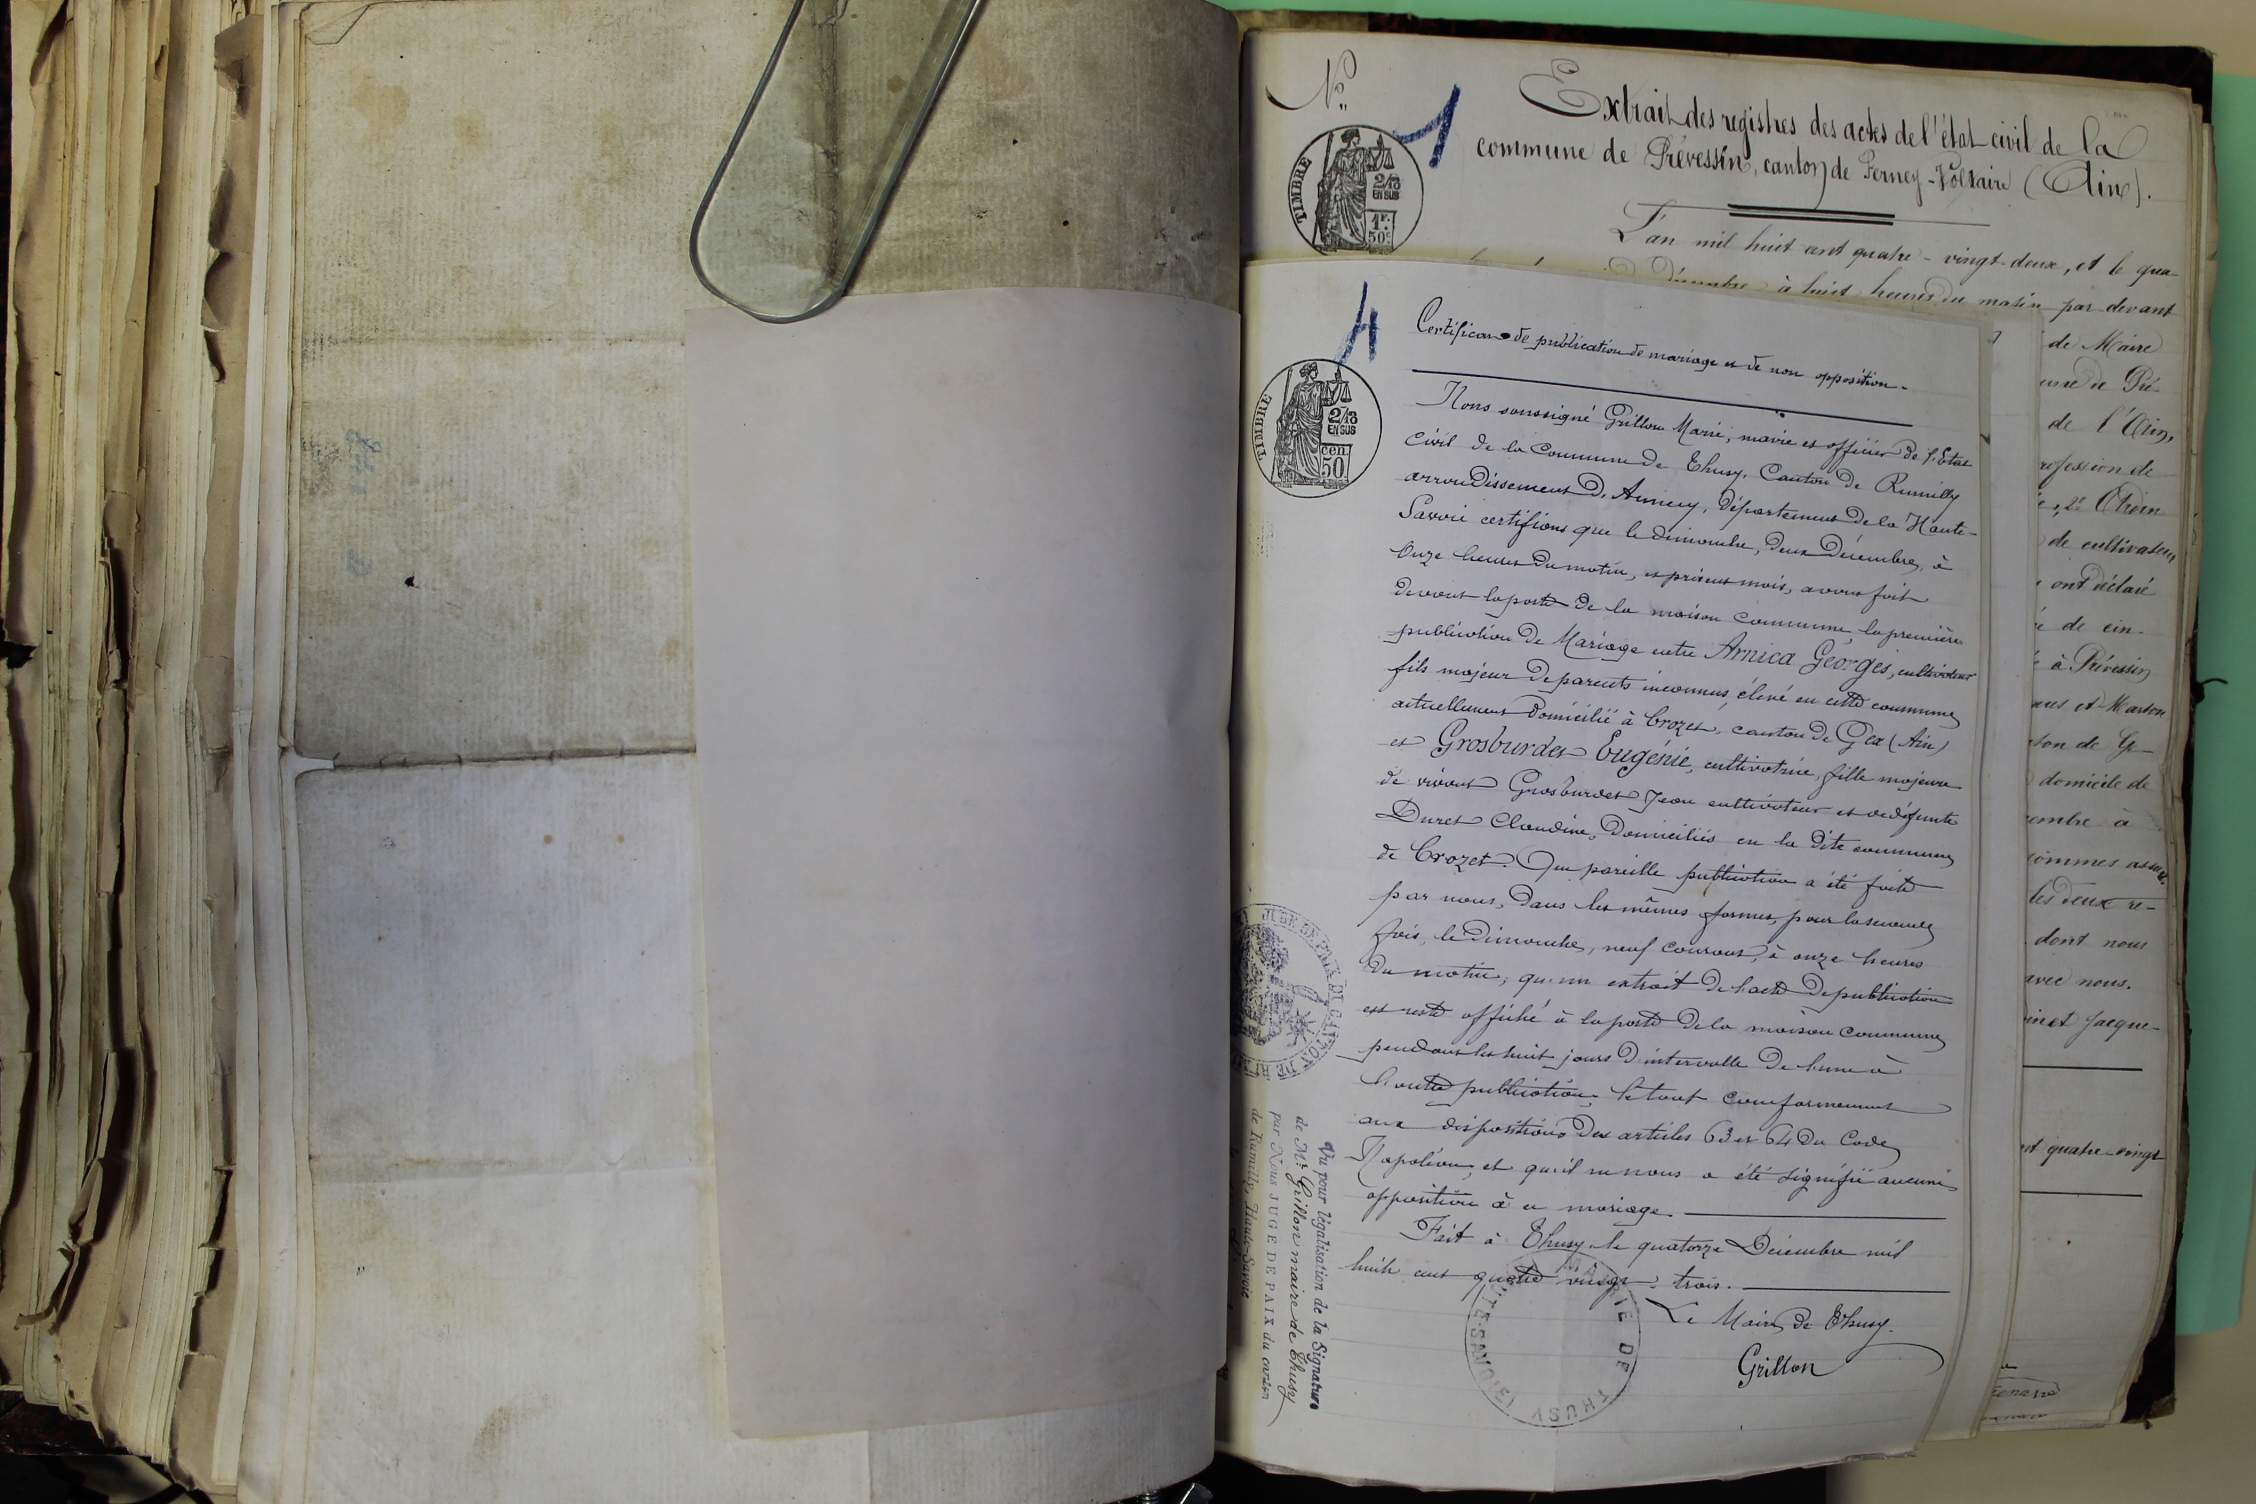 N° "
1
Extrait des registres des actes de l'état civil de la
commune de Prévessin, canton de Ferney-Voltaire (Ain).
TIMBRE
2/10
EN SUS
1F.
50c
L'an mil huit cent quatre-vingt-deux, et le qua-
Décembre à huit heures du matin par devant
de Maire
de Pré-
de l'Ain,
rofession de
de cultivateur
ont déclaré
de cin-
à Prévessin
et Marton
ton de Ge-
domicile de
embre à
sommes
les deux re-
dont nous
avec nous.
inet Jacque-
nt quatre-vingt
4
TIMBRE
2/10
EN SUS
cen
50
Certificat de publication de mariage et de non opposition.
Nous soussigné Grillon Marie, maire et officier de l'Etat
Civil de la Commune de Thusy, Canton de Rumilly
arrondissement D'Annecy, Département de la Haute-
Savoie certifions que le dimanche, deux Décembre, à
Onze heures du matin, et présent mois, avons fait
devant la porte de la maison commune, la première
publication de Mariage entre Arnica Georges, cultivateur
fils majeur de parents inconnus, élevé en cette commune
actuellement domicilié à Crozet, canton de Gex (Ain)
et Grosburdet Eugénie, cultivatrice, fille majeure
de vivant Grosburdet Jean cultivateur et de défunte
Duret Claudine, Domiciliés en la dite commune
de Crozet. Que pareille publication a été faite
par nous, dans les mêmes formes, pour la seconde
fois, le Dimanche, neuf courant, à onze heures
du matin; qu'un extrait de l'acte de publication
est resté affiché à la porte de la maison commune
pendant les huit jours d'intervalle de l'une à
l'autre publication. Le tout conformement
aux dispositions des articles 63 et 64 du Code
Napoléon, et qu'il ne nous a été signifié aucune
opposition à ce mariage.
Fait à Thusy le quatorze Décembre mil
huit cent quatre vingt-trois.
Le Maire de Thusy.
Grillon
MAIRIE DE THUSY
HTE-SAVOIE
Vu pour légalisation de la Signature
de Mr. Grillon maire de Thusy
par Nous JUGE DE PAIX du canton
de Rumilly, Haute-Savoie